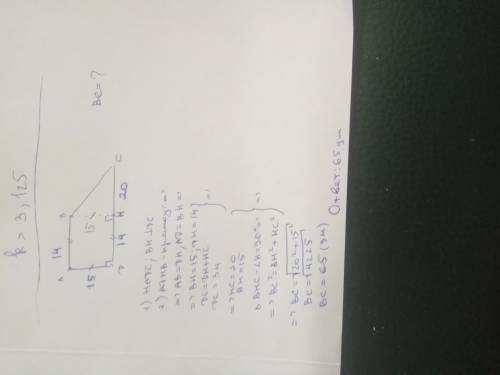 k > 3,125
A 14 B
15 15
D 14 H 20 C
BC = ?
1) H∈DC, BH⊥DC
2) ADHB - прямоуг =>
=> AB=DH, AD=BH =>
=> BH=15, DH=14
DC=DH+HC
DC=34
=> HC=20
BH=15
△BHC-∠H=90° =>
=> BC²=BH²+HC²
=> BC=√20²+15²
BC=√4225
BC=65 (дм)
Ответ: 65 дм